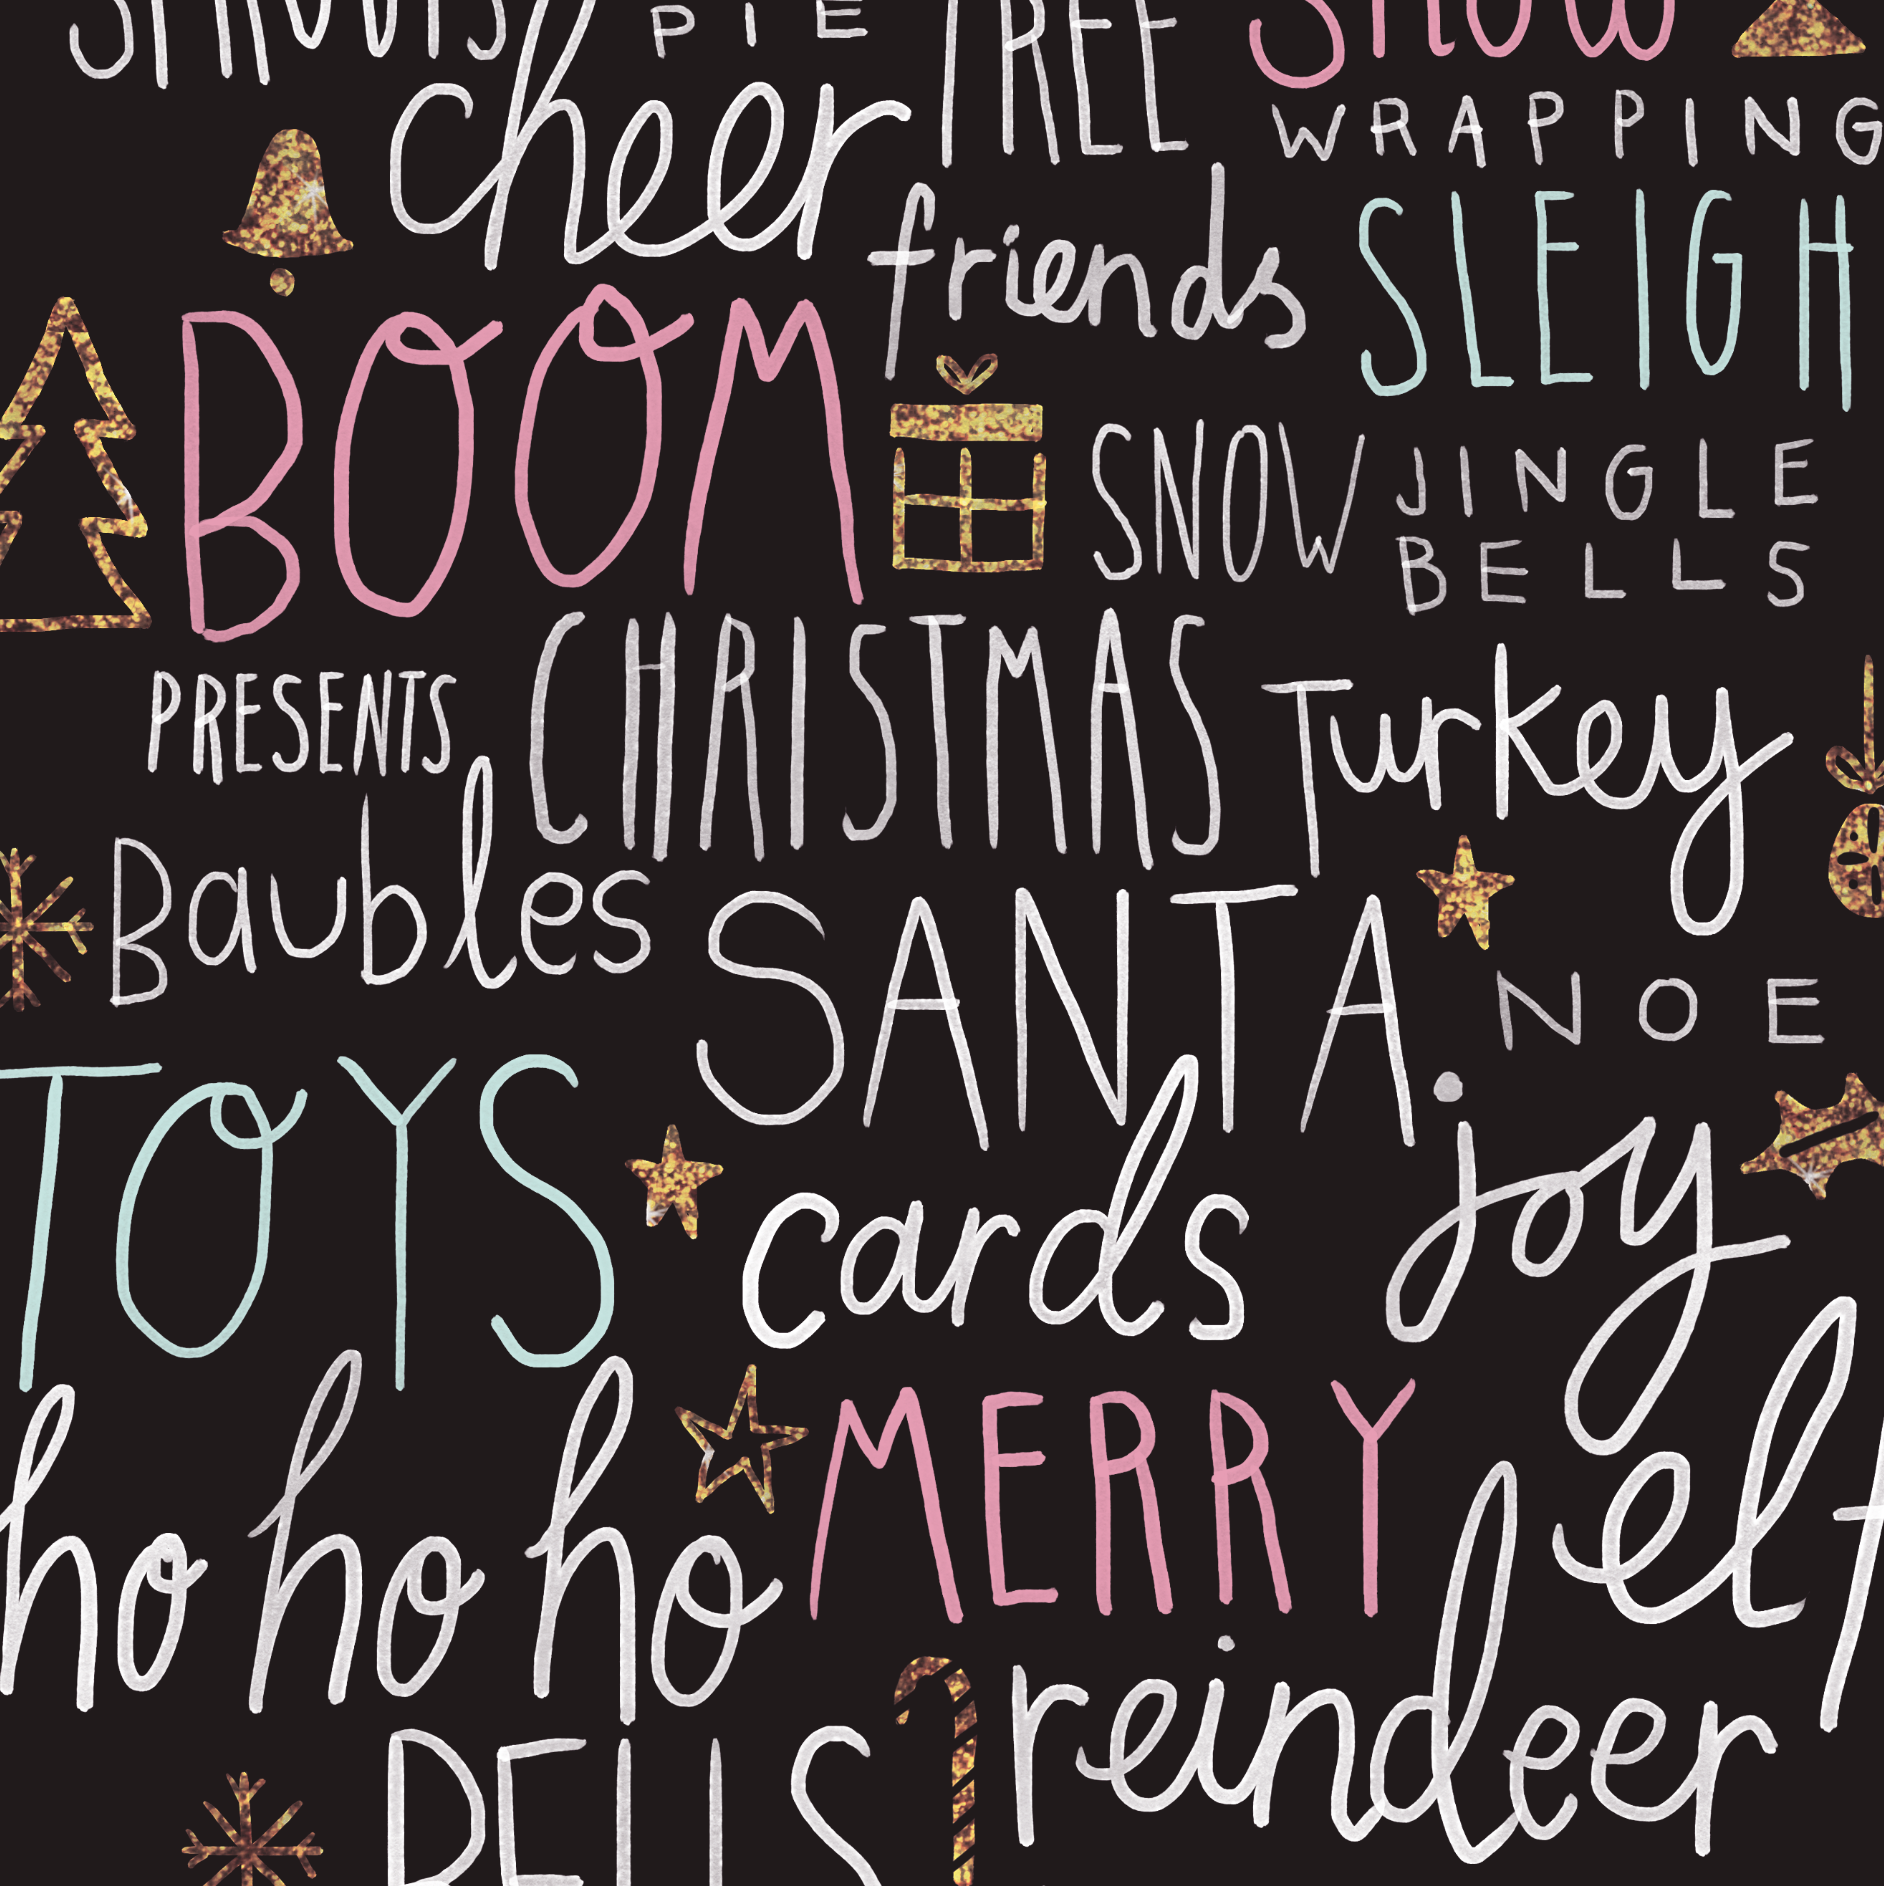 SPROUTS PIE TREE SNOW
cheer WRAPPING
friends SLEIGH
BOOM SNOW JINGLE
BELLS
PRESENTS CHRISTMAS Turkey
Baubles SANTA NOE
TOYS cards joy
ho ho ho MERRY elf
reindeer
BELLS